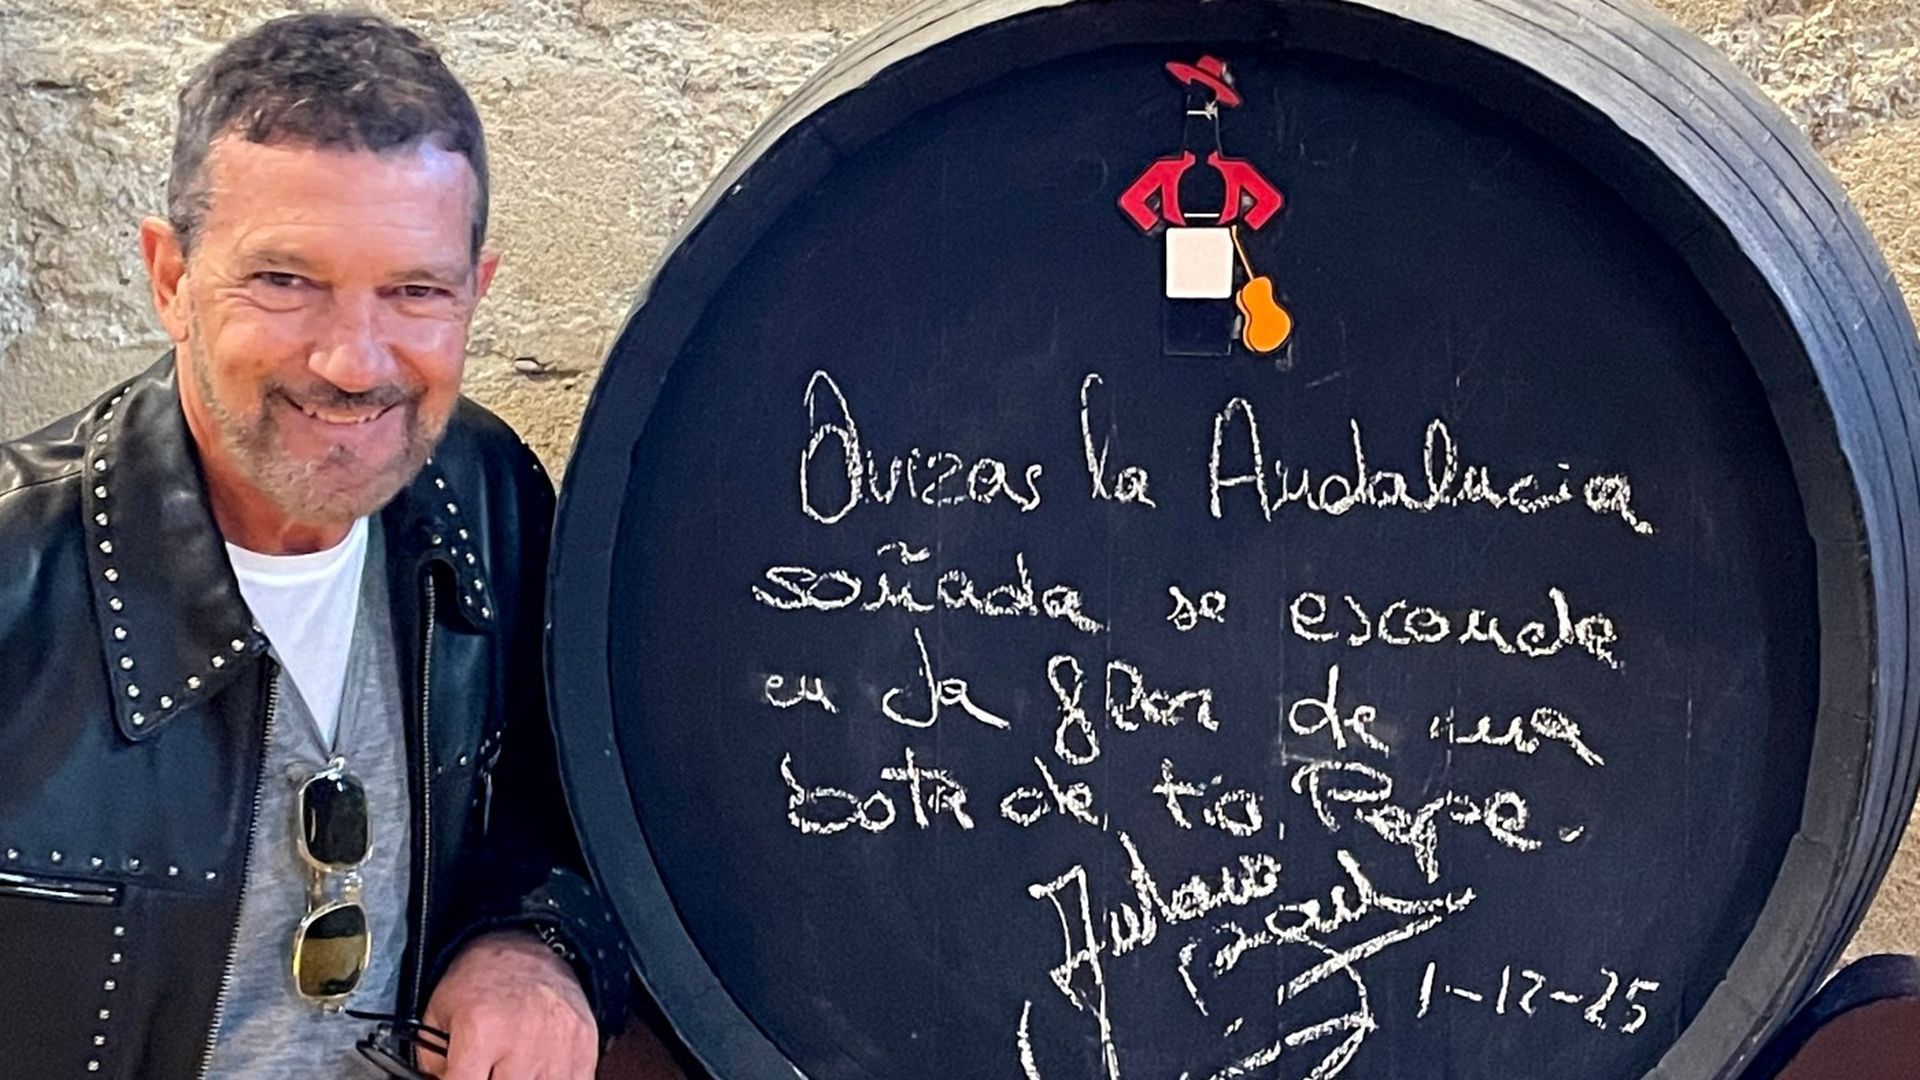 Quizas la Andalucia
soñada se esconde
en la flor de una
bota de tio Pepe.
Antonio
1-12-25